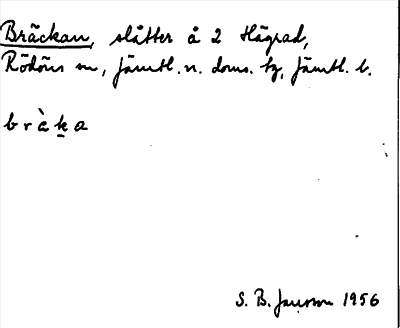 Bräckan, slåtter å 2 Hägrad,
Rödöns sn, Jämtl. n. doms. tg, Jämtl. l.
bràka
S. B. Jansson 1956